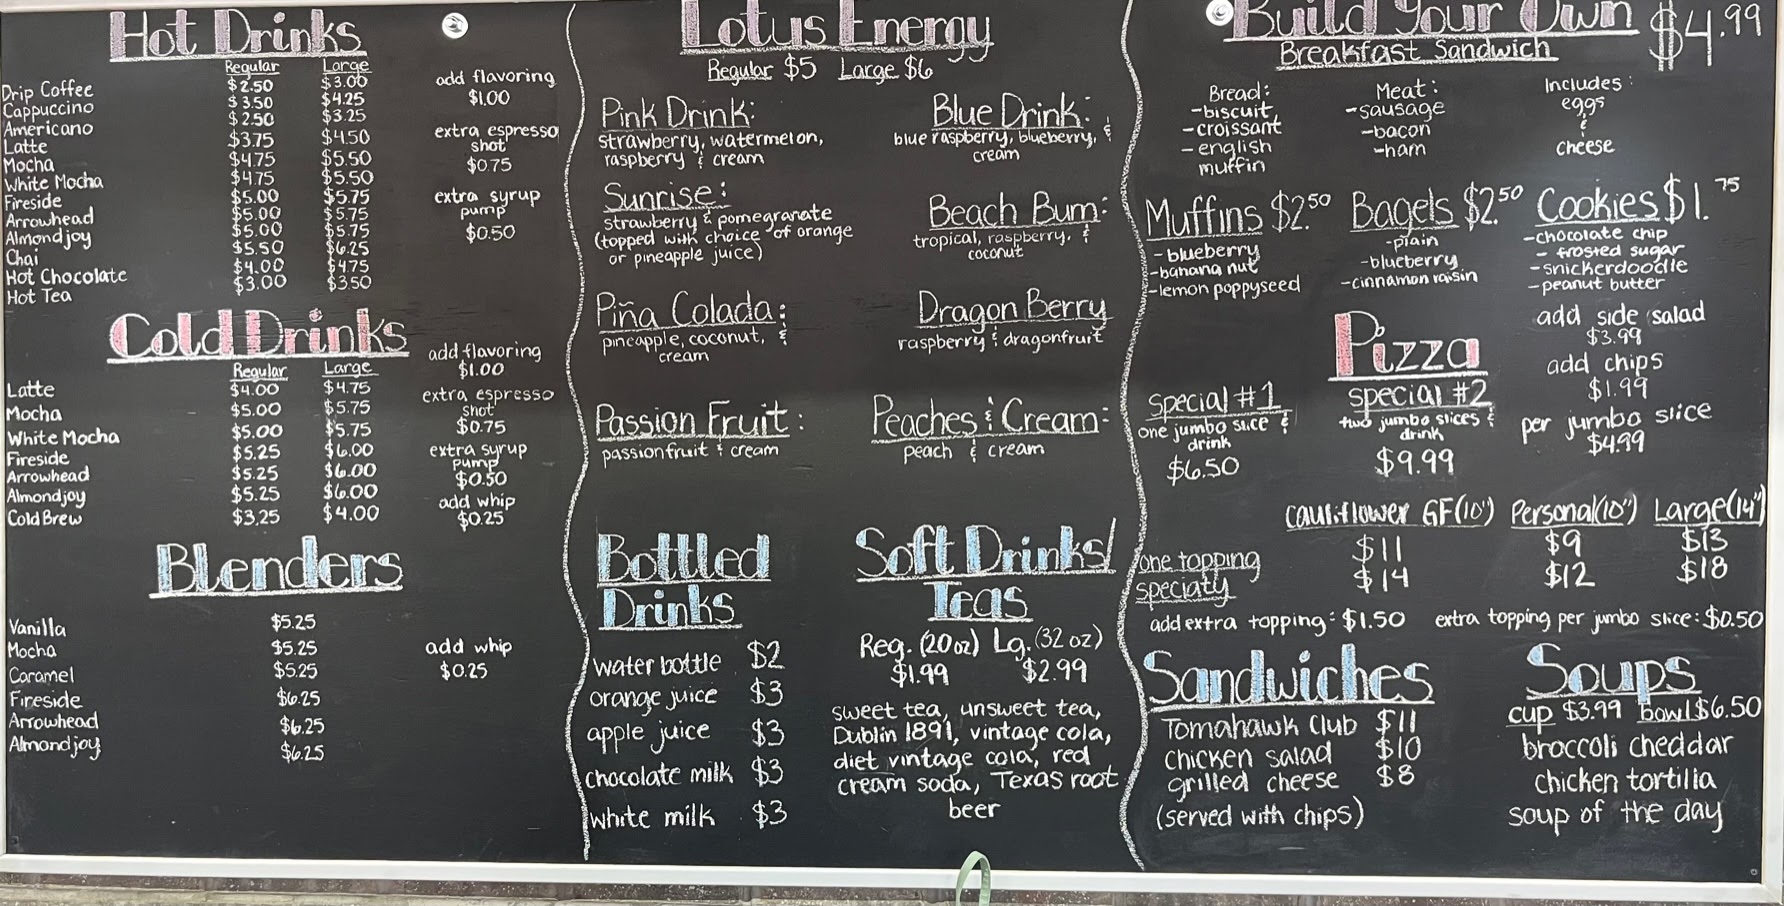 Hot Drinks
Regular Large
Drip Coffee $2.50 $3.00
Cappuccino $3.50 $4.25
Americano $2.50 $3.25
Latte $3.75 $4.50
Mocha $4.75 $5.50
White Mocha $4.75 $5.50
Fireside $5.00 $5.75
Arrowhead $5.00 $5.75
Almondjoy $5.00 $5.75
Chai $5.50 $6.25
Hot Chocolate $4.00 $4.75
Hot Tea $3.00 $3.50
add flavoring
$1.00
extra espresso
shot
$0.75
extra syrup
pump
$0.50
Cold Drinks
Regular Large
Latte $4.00 $4.75
Mocha $5.00 $5.75
White Mocha $5.00 $5.75
Fireside $5.25 $6.00
Arrowhead $5.25 $6.00
Almondjoy $5.25 $6.00
Cold Brew $3.25 $4.00
add flavoring
$1.00
extra espresso
shot
$0.75
extra syrup
pump
$0.50
add whip
$0.25
Blenders
Vanilla $5.25
Mocha $5.25
Caramel $5.25
Fireside $6.25
Arrowhead $6.25
Almondjoy $6.25
add whip
$0.25
Lotus Energy
Regular $5 Large $6
Pink Drink:
strawberry, watermelon,
raspberry & cream
Blue Drink:
blue raspberry, blueberry, &
cream
Sunrise:
strawberry & pomegranate
(topped with choice of orange
or pineapple juice)
Beach Bum:
tropical, raspberry, &
coconut
Piña Colada:
pineapple, coconut, &
cream
Dragon Berry
raspberry & dragonfruit
Passion Fruit:
passionfruit & cream
Peaches & Cream:
peach & cream
Bottled
Drinks
water bottle $2
orange juice $3
apple juice $3
chocolate milk $3
white milk $3
Soft Drinks/
Teas
Reg. (20oz) Lg. (32 oz)
$1.99 $2.99
sweet tea, unsweet tea,
Dublin 1891, vintage cola,
diet vintage cola, red
cream soda, Texas root
beer
Build Your Own $4.99
Breakfast Sandwich
Bread:
-biscuit
-croissant
-english
muffin
Meat:
-sausage
-bacon
-ham
Includes:
eggs
&
cheese
Muffins $2.50
-blueberry
-banana nut
-lemon poppyseed
Bagels $2.50
-plain
-blueberry
-cinnamon raisin
Cookies $1.75
-chocolate chip
- frosted sugar
-snickerdoodle
-peanut butter
Pizza
special #1
one jumbo slice &
drink
$6.50
special #2
two jumbo slices &
drink
$9.99
add side salad
$3.99
add chips
$1.99
per jumbo slice
$4.99
cauliflower GF(10") Personal(10") Large(14")
one topping $11 $9 $13
specialty $14 $12 $18
add extra topping: $1.50 extra topping per jumbo slice: $0.50
Sandwiches
Tomahawk Club $11
chicken salad $10
grilled cheese $8
(served with chips)
Soups
cup $3.99 bowl $6.50
broccoli cheddar
chicken tortilla
soup of the day